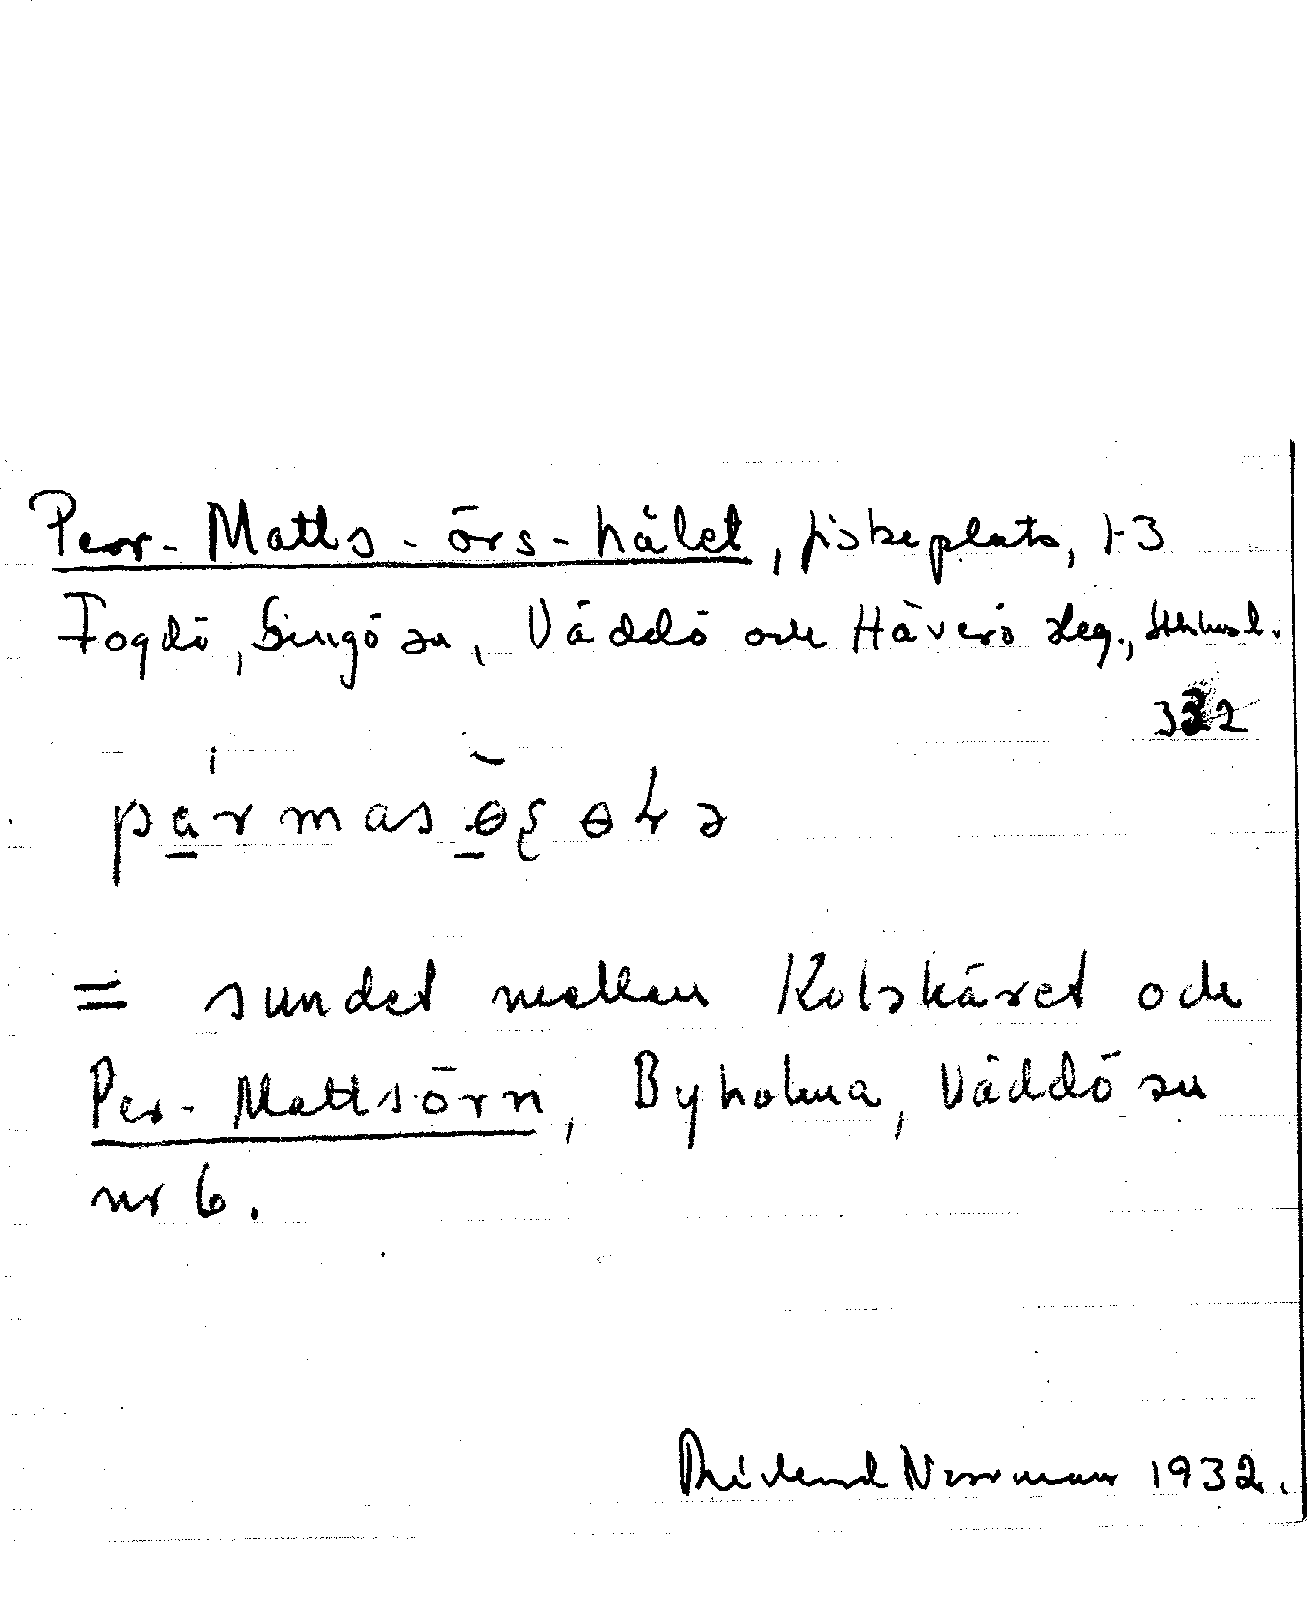 Per-Matts-örs-hålet, fiskeplats, 1-3
Fogdö, Singö sn, Väddö och Häverö skg., Sthlms l.
332
pạrmasọ̄ʂɵɫə
= sundet mellan Kolskäret och
Per-Mattsörn, Byholma, Väddö sn
nr 6.
Norrman 1932.